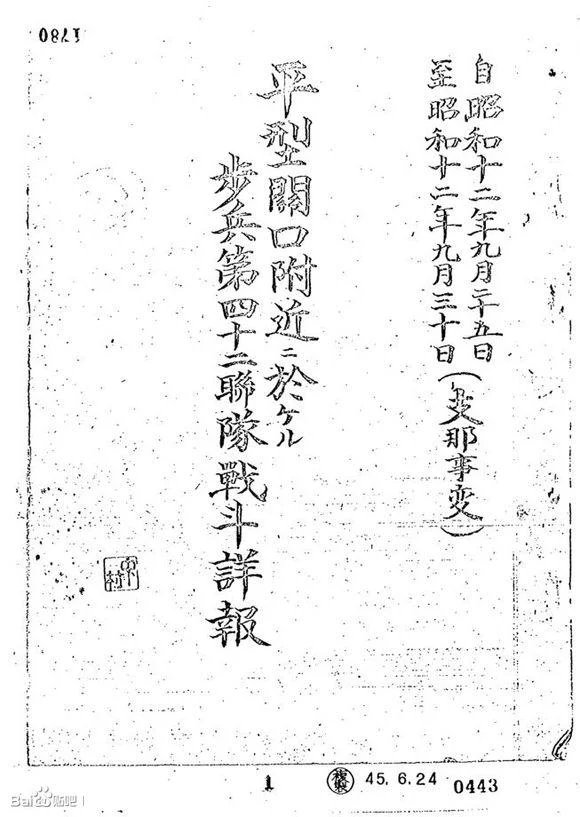 1780
自昭和十二年九月二十五日
至昭和十二年九月三十日(支那事変)
平型関口附近ニ於ケル
歩兵第四十二聯隊戦斗詳報
中村
1
複製 45.6.24 0443
Bai 贴吧